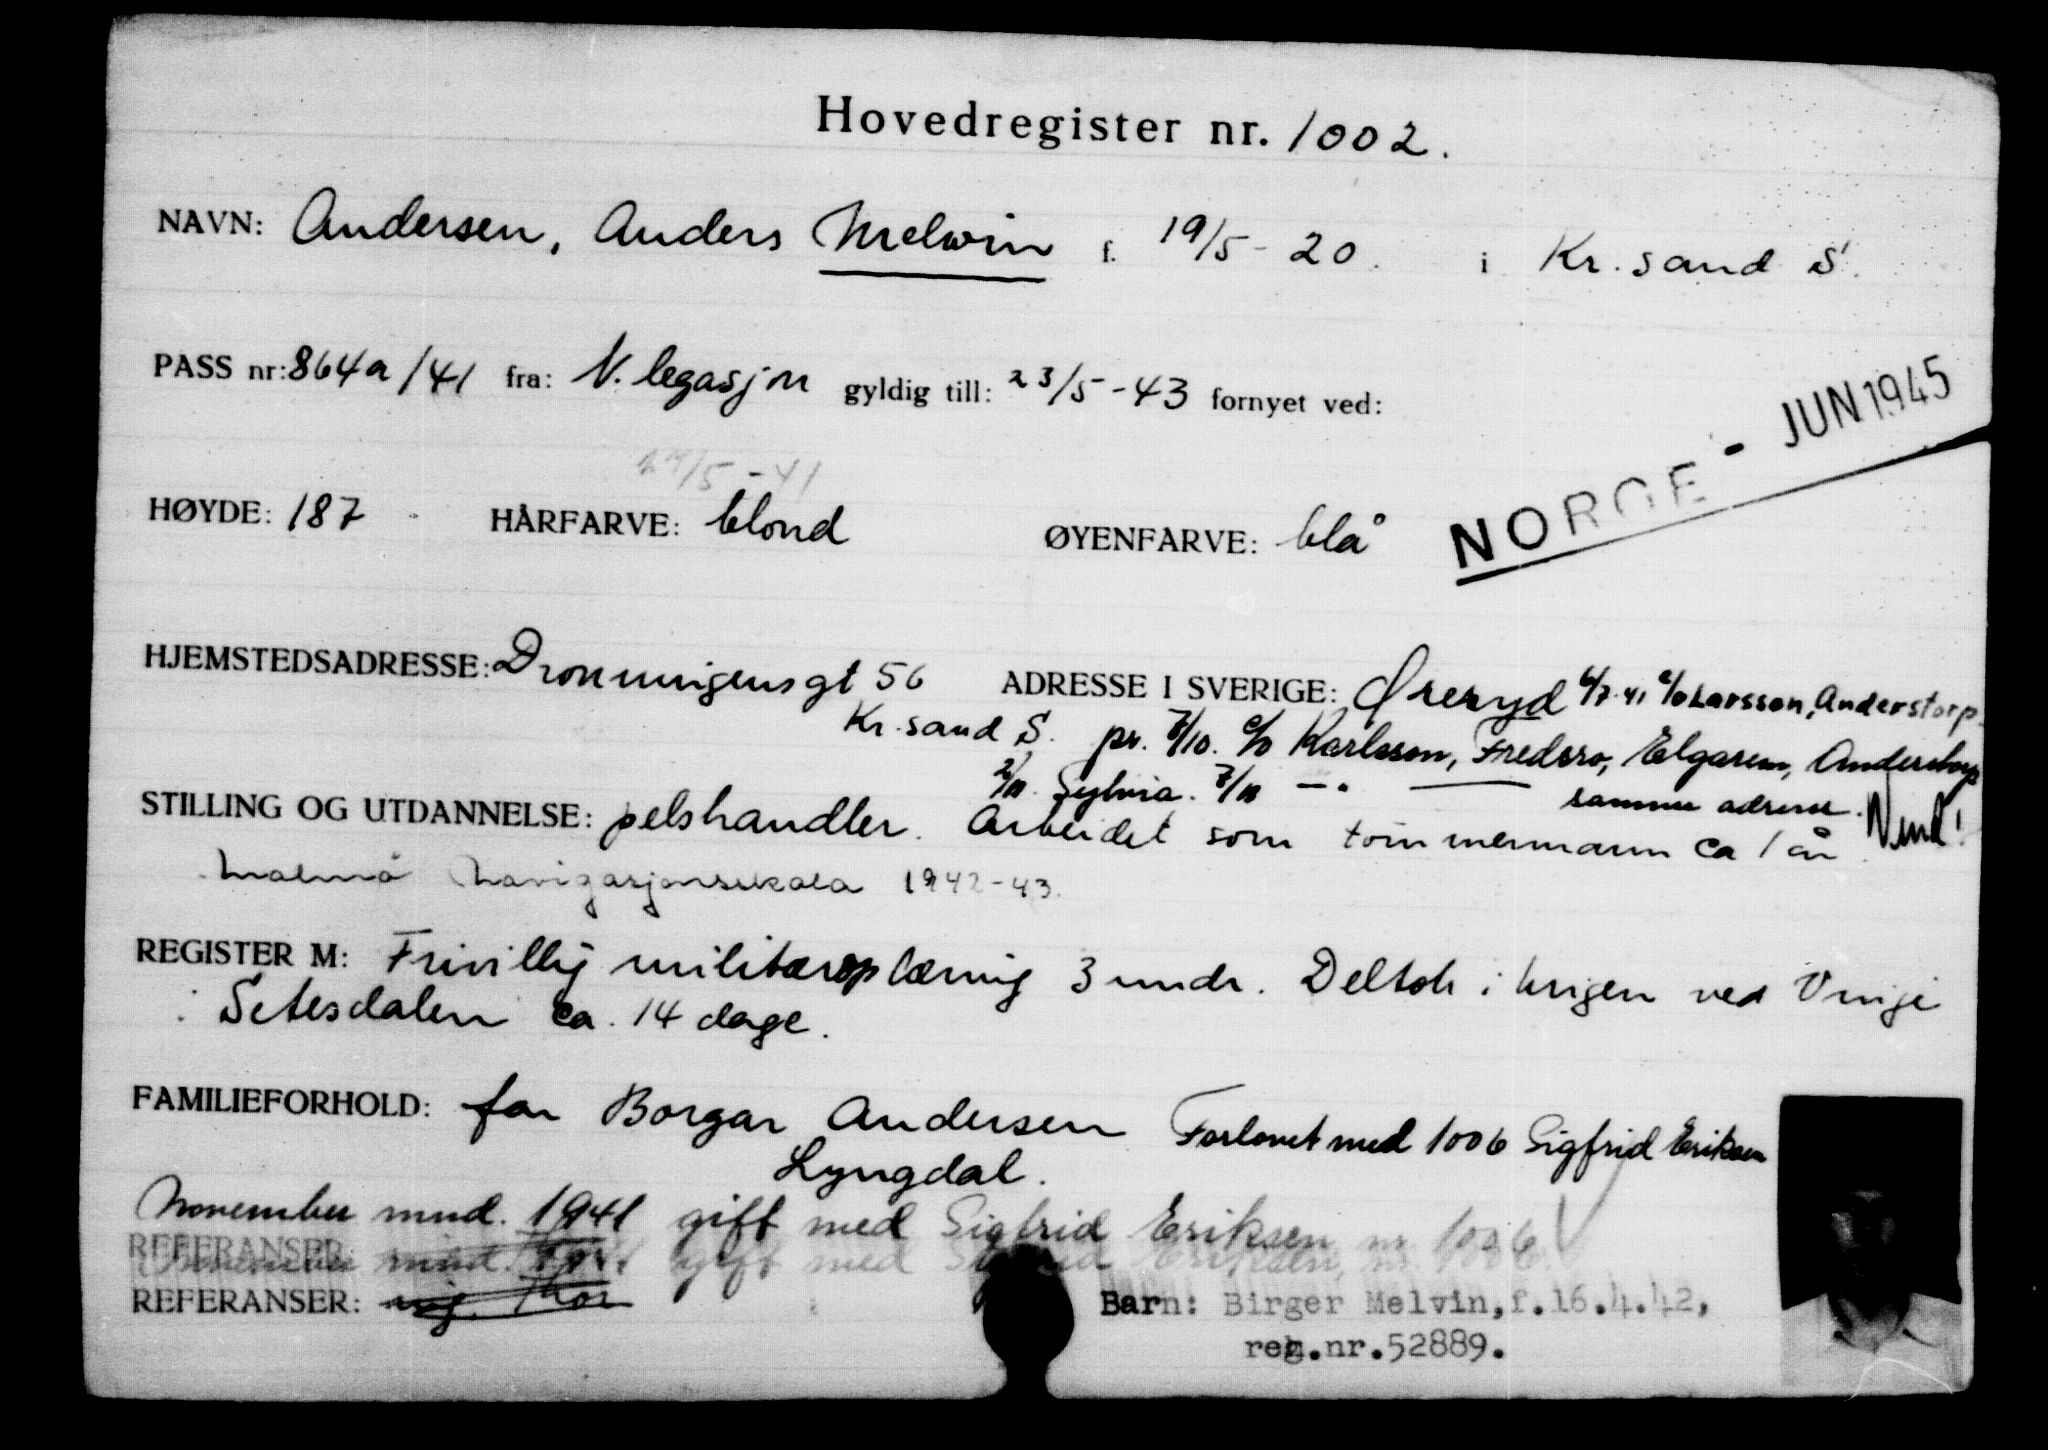 Hovedregister nr. 1002.
NAVN: Andersen, Anders Melwin f. 19/5-20. i Kr.sand S.
PASS nr: 864a/41 fra: N. legasjon gyldig till: 23/5-43 fornyet ved:
NORGE - JUN 1945
/5-41
HØYDE: 187 HÅRFARVE: blond ØYENFARVE: blå
HJEMSTEDSADRESSE: Dronningensgt 56 ADRESSE I SVERIGE: Øreryd 6/7-41 c/o Larsson, Anderstorp
Kr.sand S. pr. 7/10. c/o Karlsson, Fredsro, Elgaren, Anderstorp
Sylvia. 7/11 — " — samme adresse.
STILLING OG UTDANNELSE: pelshandler. Arbeidet som tømmermann ca 1 år
Malmø Navigasjonsskola 1942-43.
REGISTER M: Frivillig militæropplæring 3 mndr. Deltok i krigen ved Vinje
i Setesdalen ca. 14 dage.
FAMILIEFORHOLD: far Borgar Andersen Forlovet med 1006 Sigfrid Eriksen
Lyngdal.
November mnd. 1941 gift med Sigfrid Eriksen nr. 1006
REFERANSER: mnd. gift med Eriksen, nr. 1006
REFERANSER: Barn: Birger Melvin, f.16.4.42,
reg.nr.52889.